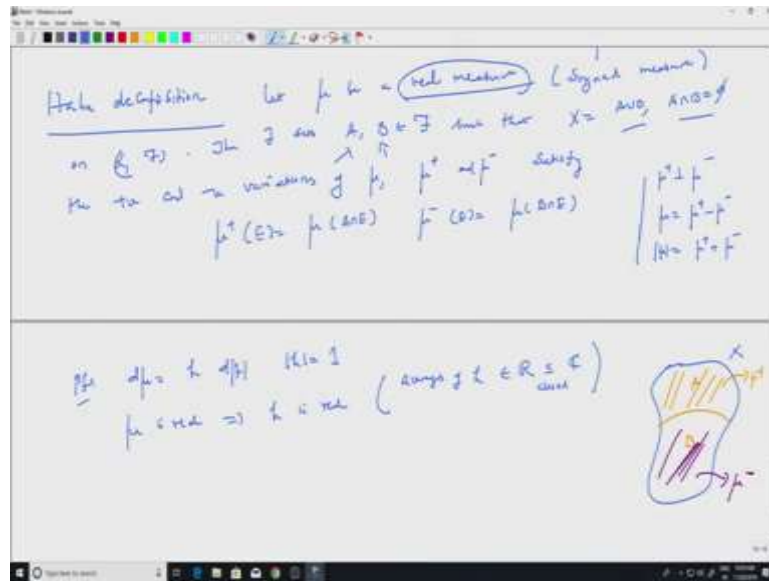 Hahn decomposition Let μ be a real measure (Signed measure)
on (X, F). Then ∃ sets A, B ∈ F such that X = A∪B, A∩B = ϕ
the +ve and -ve variations of μ, μ⁺ and μ⁻ satisfy
μ⁺(E) = μ(A∩E) μ⁻(E) = μ(B∩E)
μ⁺ ⊥ μ⁻
μ = μ⁺ - μ⁻
|μ| = μ⁺ + μ⁻
Pf: dμ = h d|μ| |h| = 1
μ is real ⇒ h is real (avngs of h ∈ ℝ ⊆ ℂ
closed)
X
A
μ⁺
B
μ⁻
Type here to search